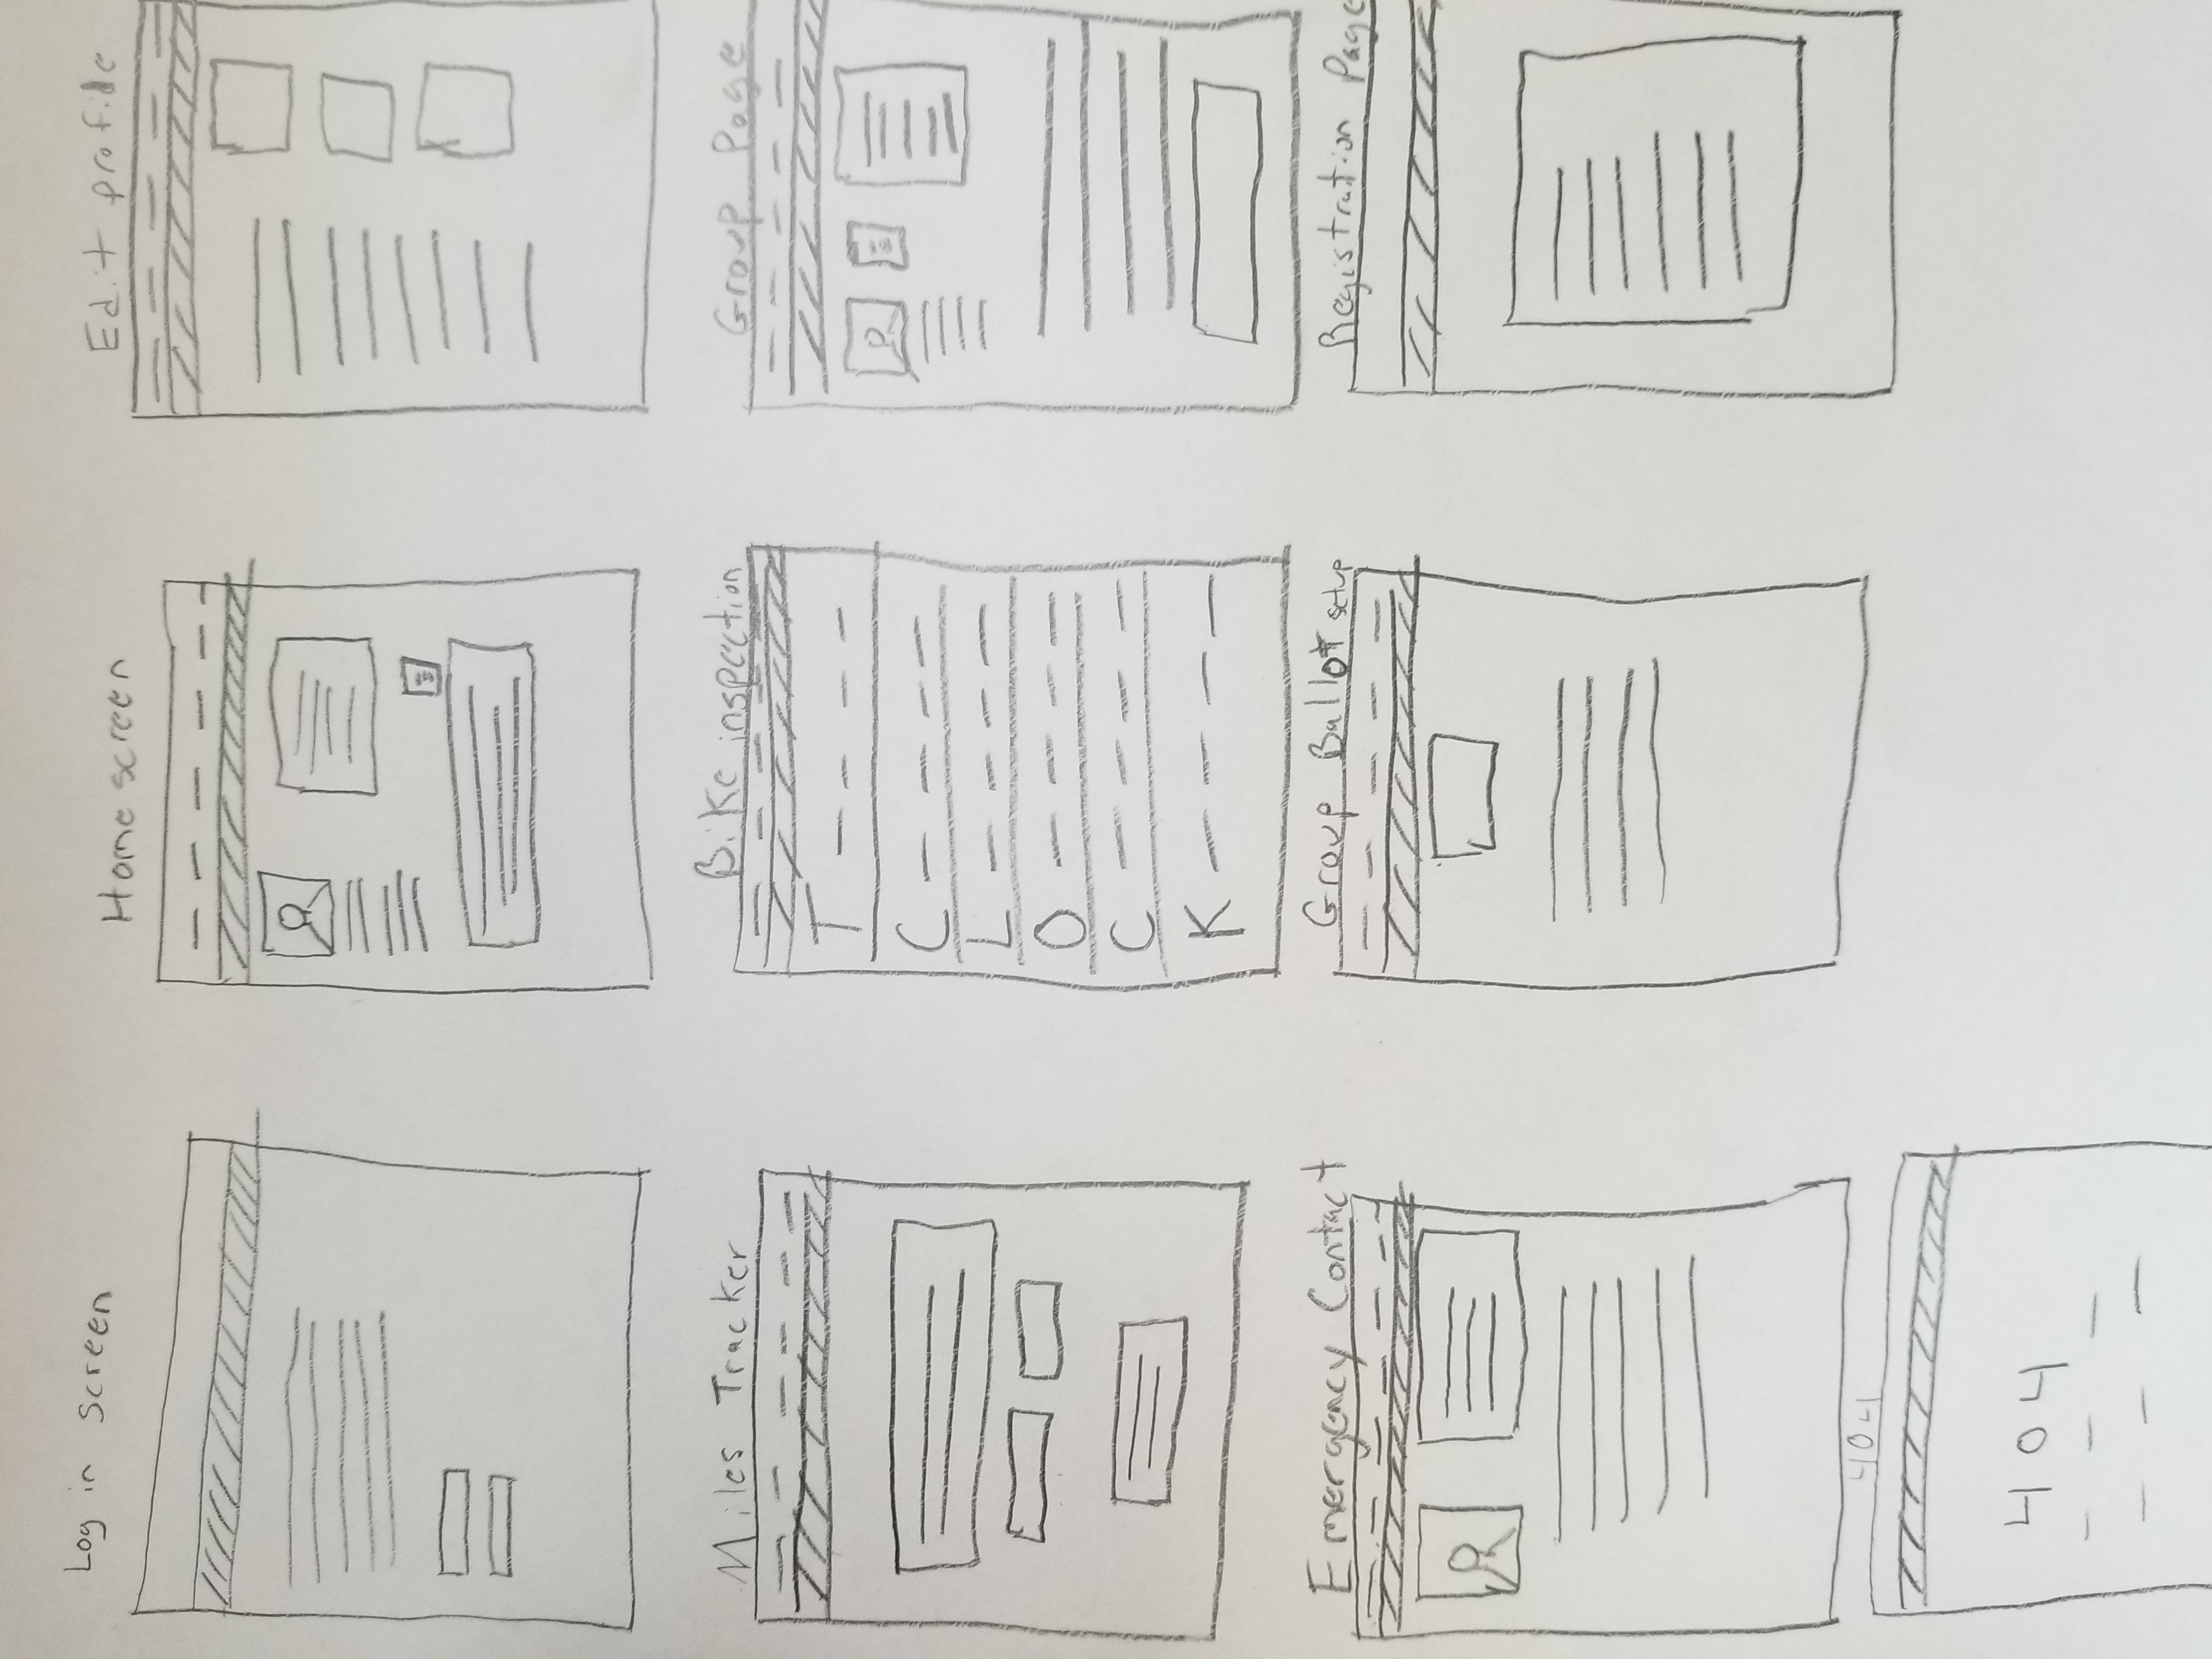 Log in screen
Home screen
Edit profile
Miles Tracker
Bike inspection
Group Page
T
C
L
O
C
K
Emergency Contact
Group Ballot setup
Registration Page
404
404